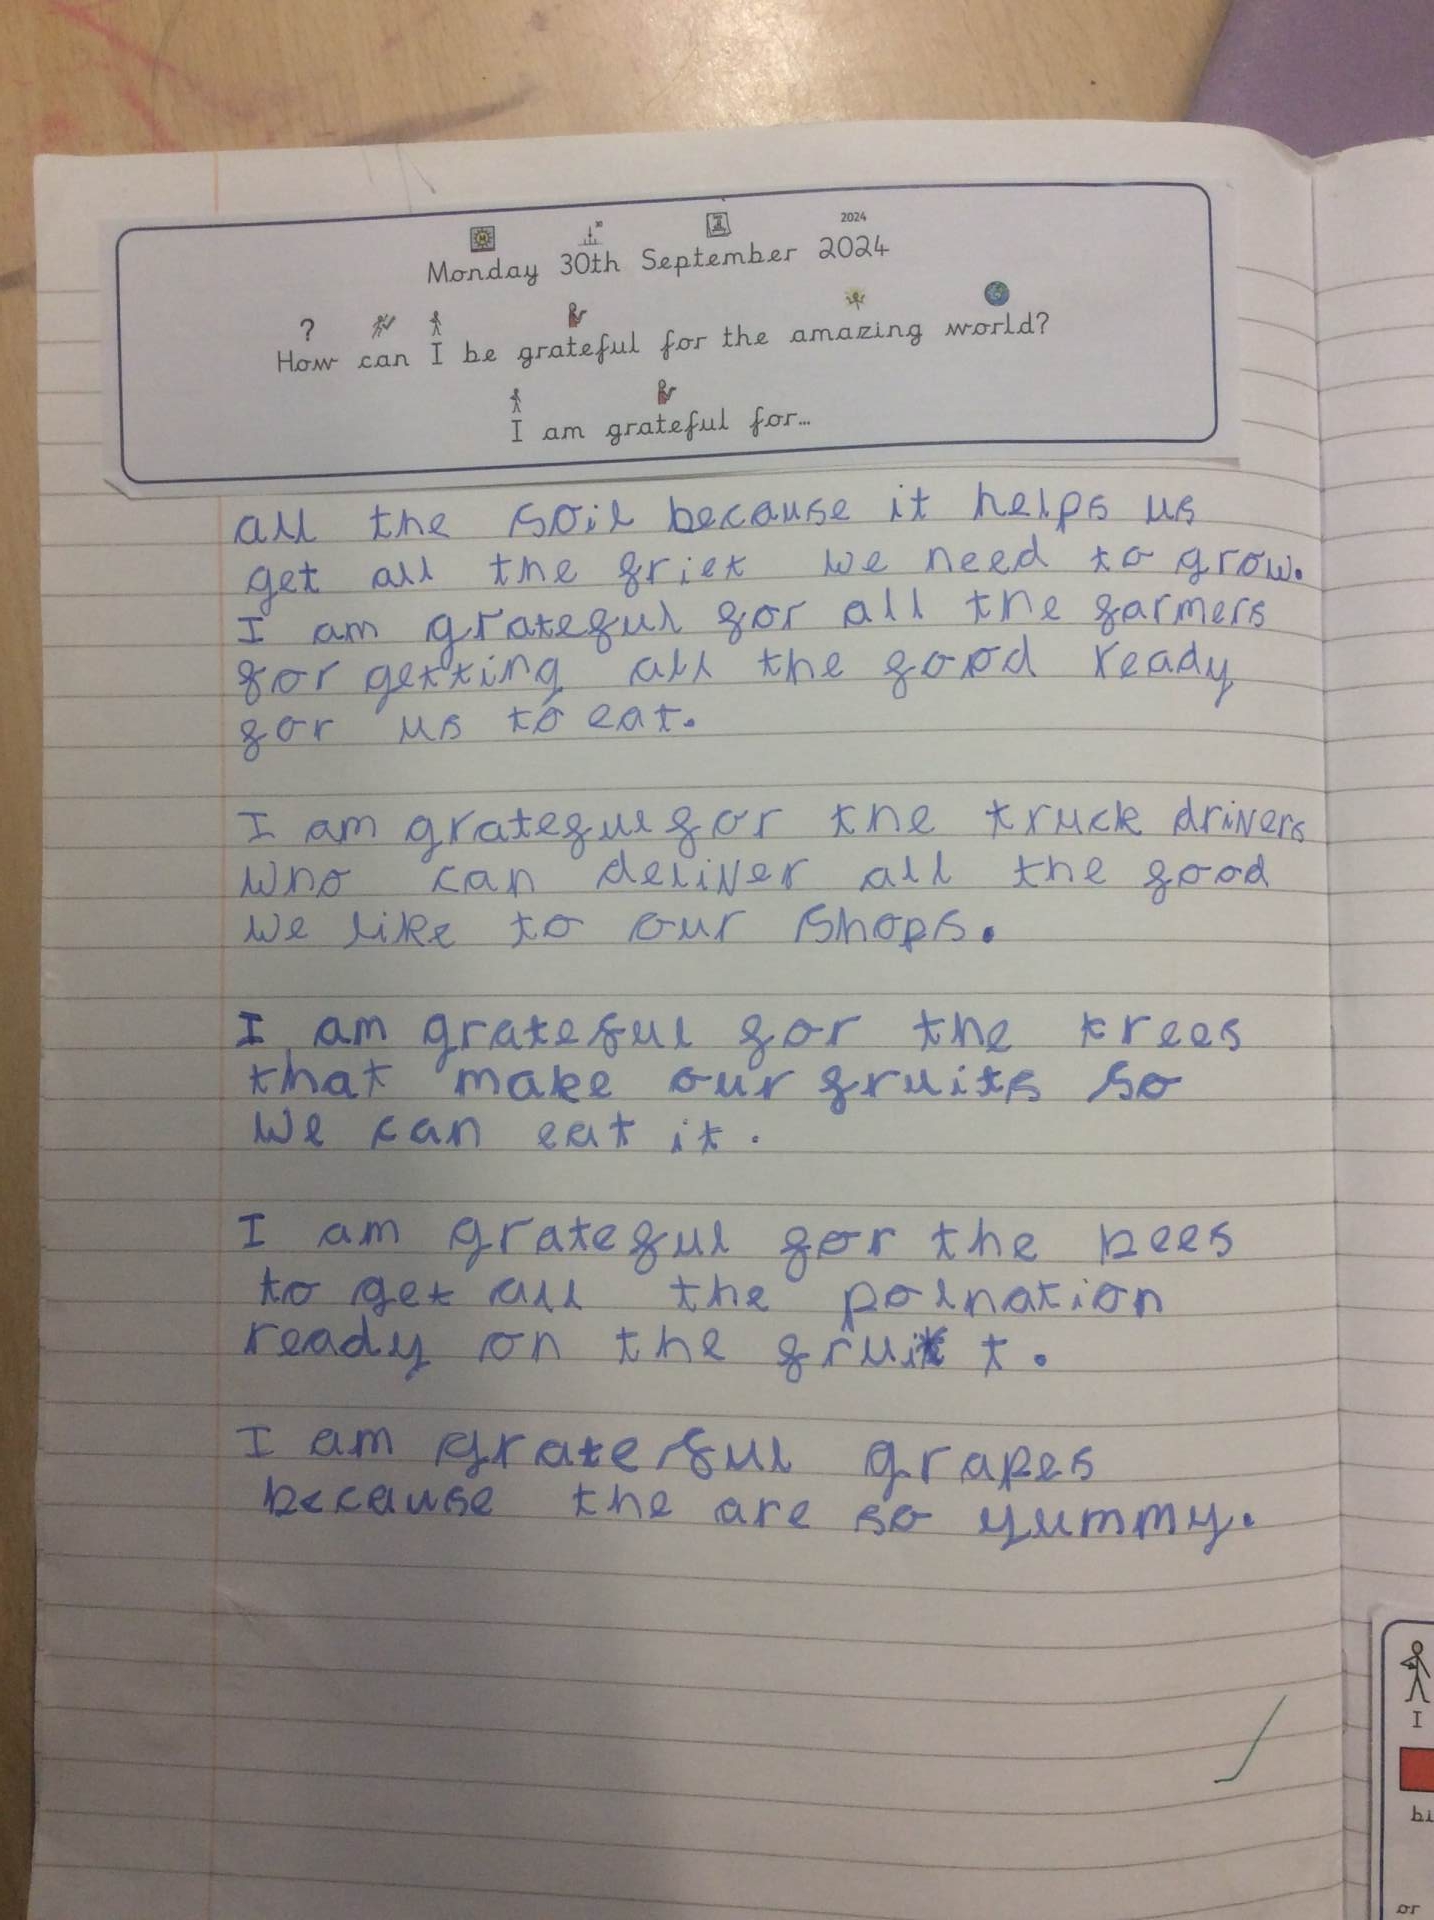 2024
Monday 30th September 2024
?
How can I be grateful for the amazing world?
I am grateful for...
all the soil because it helps us
get all the friet we need to grow.
I am grateful for all the farmers
for getting all the food ready
for us to eat.
I am grateful for the truck drivers
who can deliver all the food
we like to our shops.
I am grateful for the trees
that make our fruits so
we can eat it.
I am grateful for the bees
to get all the polnation
ready on the fruit.
I am grateful grapes
because the are so yummy.
I
or